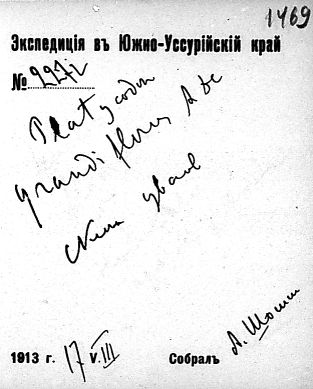 1469
Экспедиція въ Южно-Уссурійскій край
№ 2272
Platycodon
grandiflorus A DC
1913 г. 17 V.III Собралъ